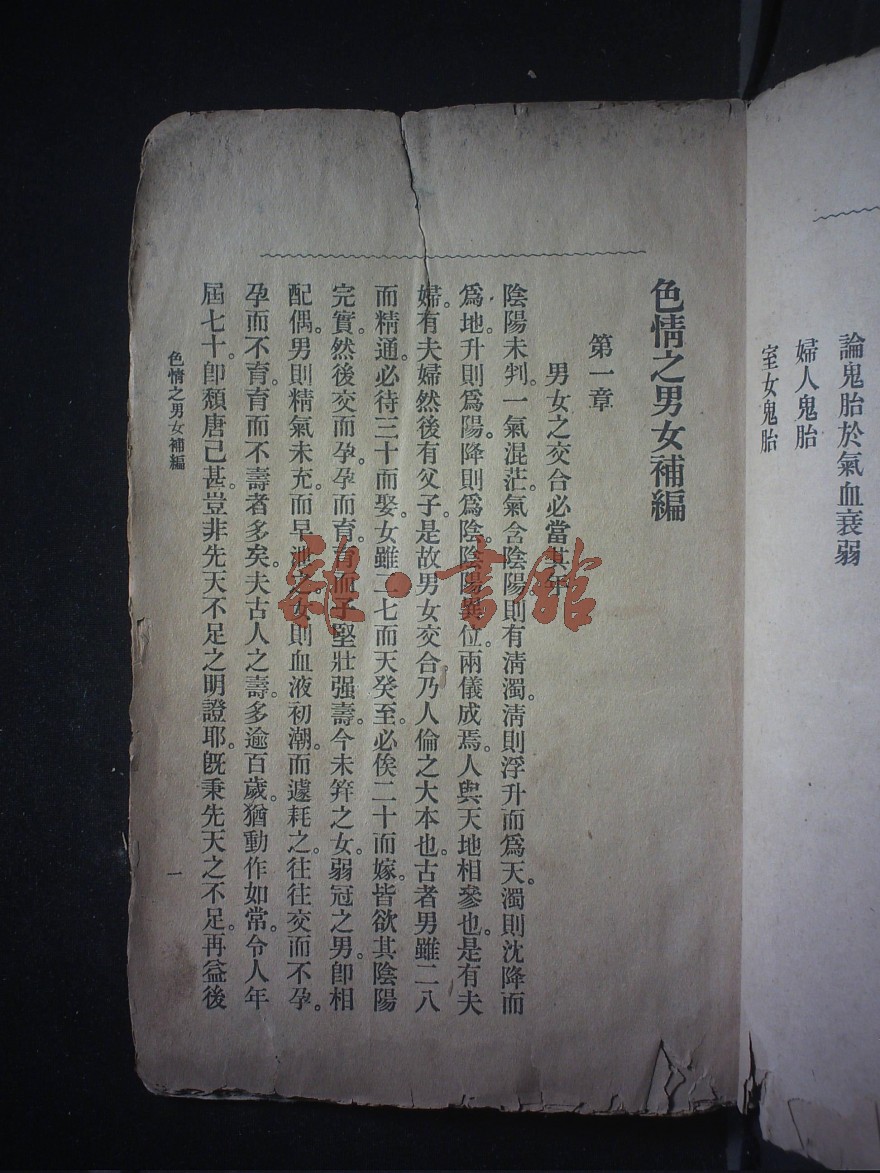 論鬼胎於氣血衰弱
婦人鬼胎
室女鬼胎
色情之男女補編
第一章
男女之交合必當其年
陰陽未判。一氣混茫。氣含陰陽。則有淸濁。淸則浮升而爲天。濁則沈降而
爲地。升則爲陽。降則爲陰。陰陽異位。兩儀成焉。人與天地相參也。是有夫
婦。有夫婦然後有父子。是故男女交合。乃人倫之大本也。古者男雖二八
而精通。必待三十而娶。女雖二七而天癸至。必俟二十而嫁。皆欲其陰陽
完實。然後交而孕。孕而育。育而子堅壯强壽。今未笄之女。弱冠之男。卽相
配偶。男則精氣未充。而早泄之。女則血液初潮。而遽耗之。往往交而不孕。
孕而不育。育而不壽者多矣。夫古人之壽。多逾百歲。猶動作如常。今人年
屆七十。卽頽唐已甚。豈非先天不足之明證耶。旣秉先天之不足。再益後
色情之男女補編
一
雜·書館